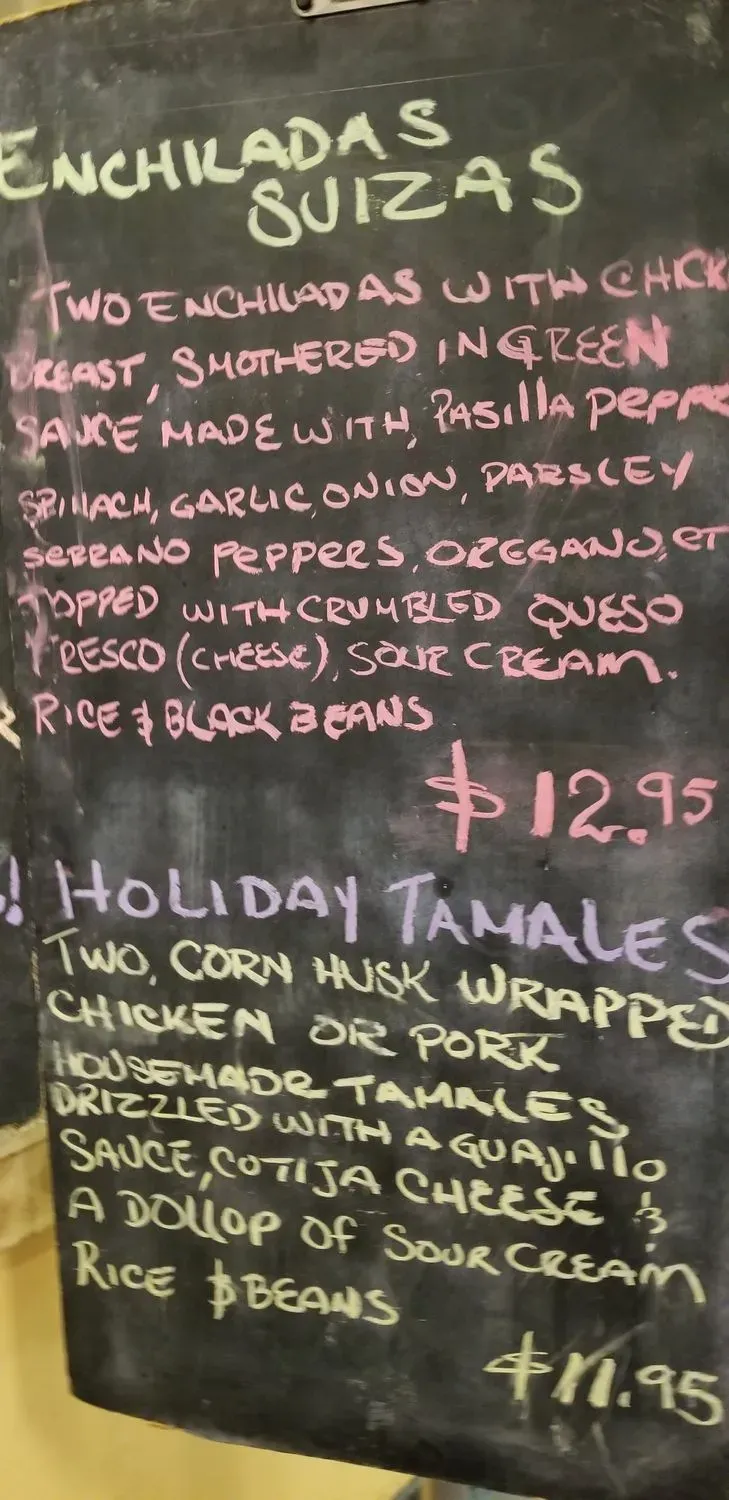 ENCHILADAS
SUIZAS
TWO ENCHILADAS WITH CHICK
BREAST, SMOTHERED IN GREEN
SAUCE MADE WITH, PASIllA PEPPE
SPINACH, GARLIC, ONION, PARSLEY
SERRANO PEPPERS, OREGANO, ET
TOPPED WITH CRUMBLED QUESO
FRESCO (CHEESE), SOUR CREAM.
RICE & BLACK BEANS
$12.95
! HOLIDAY TAMALES
TWO, CORN HUSK WRAPPED
CHICKEN OR PORK
HOUSEMADE TAMALES
DRIZZLED WITH A GUAJIllO
SAUCE, COTIJA CHEESE &
A DOllOP OF SOUR CREAM
RICE & BEANS
$11.95